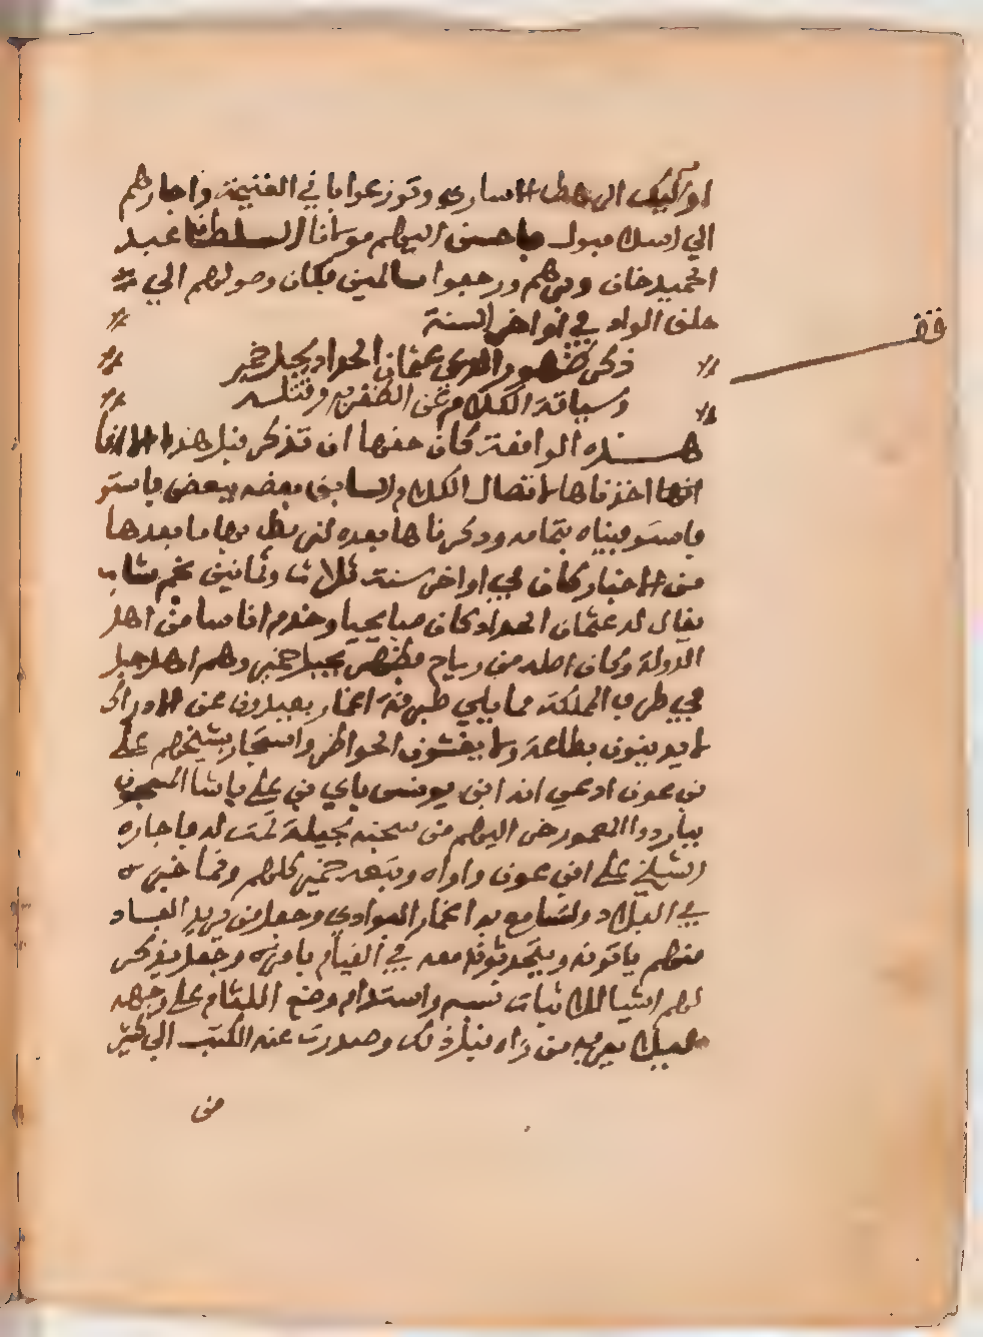 اولئك الى الاسارى وتوزعوا في الغنيمة واجازهم
الي اسلامبول فاحسن اليهم مولانا السلطان عبد
الحميد خان ورجعوا سالمين فكان وصولهم الي
حلق الواد في اواخر السنة
ذكر ظهور المدعي عثمان الحداد بجبل خمير
وسياقة الكلام عن الظفر به وقتله
هذه الواقعة كان حقها ان تذكر قبل هذا الا
انها اخرناها لاتصال الكلام السابق بعضه ببعض
بتمامه وذكرناها بعده لنربط بها ما بعدها
من الاخبار كان في اواخر سنة ثلاث وثمانين نجم شاب
يقال له عثمان الحداد كان صبايحيا وخدم اناسا من اهل
الدولة وكان اصله من رياح فظهر بجبل خمير وهم اهل جبل
في طرف المملكة مما يلي طبرقة اغمار بعيدون عن الادراك
لا يدينون بطاعة ولا يغشون الحواظر واستجار بشيخهم علي
بن عون ادعى انه ابن يونس باي بن علي باشا المسجون
بباردو المعمور خرج اليهم من سجنه بحيلة تمت له فاجاره
الشيخ علي ابن عون واواه وتبعه خمير كلهم ونما خبره
في البلاد وتسامع به اغمار البوادي وجعل من يريد الفساد
منهم ياتونه ويتحدثون معه في القيام بامره وجعل يذكر
لهم اشيا لاثبات نسبه واستدام وضع اللثام على وجهه
ليلا يعرفه من رآه قبل ذلك وصدرت عنه الكتب الى كثير
من
قف